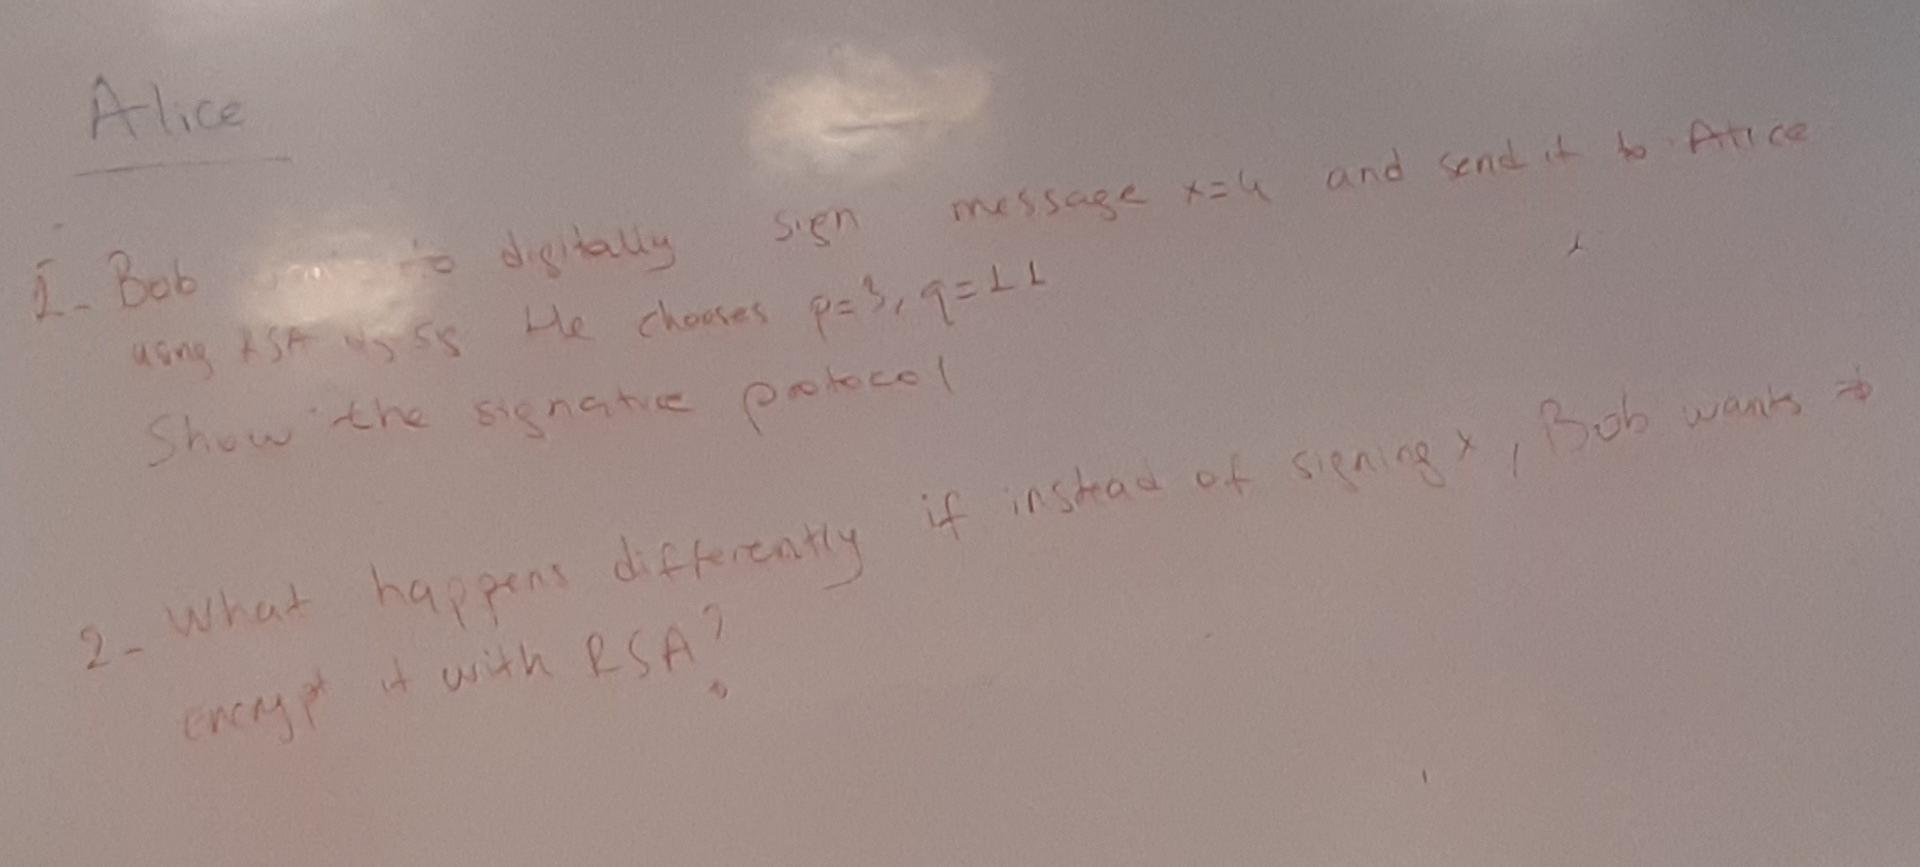 Alice
1- Bob to digitally sign message x=4 and send it to Alice
using RSA He chooses p=3, q=11
Show the signature protocol
2- What happens differently if instead of signing x, Bob wants to
encrypt it with RSA?